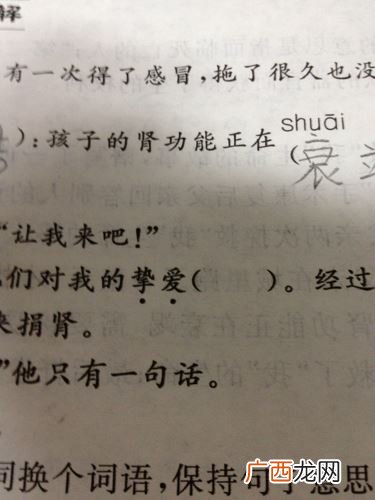 解
有一次得了感冒,拖了很久也没
shuāi
):孩子的肾功能正在(衰
“让我来吧!”
们对我的挚爱(  )。经过
来捐肾。
”他只有一句话。
词换个词语,保持句子意思
广西龙网